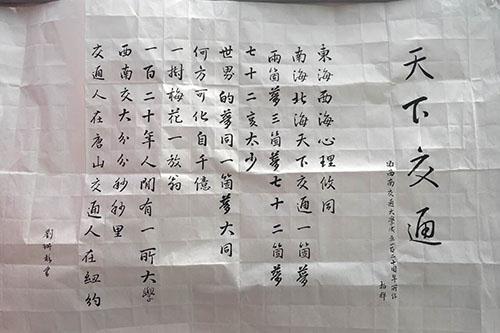 天下交通
西南交通大學
東海西海心理攸同
南海北海天下交通一箇夢
兩箇夢三箇夢七十二箇夢
七十二变太少
世界的夢同一箇夢大同
何方可化身千億
一樹梅花一放翁
一百二十年人间有一所大學
西南交大分分秒秒里
交通人在唐山交通人在紐約
劉書